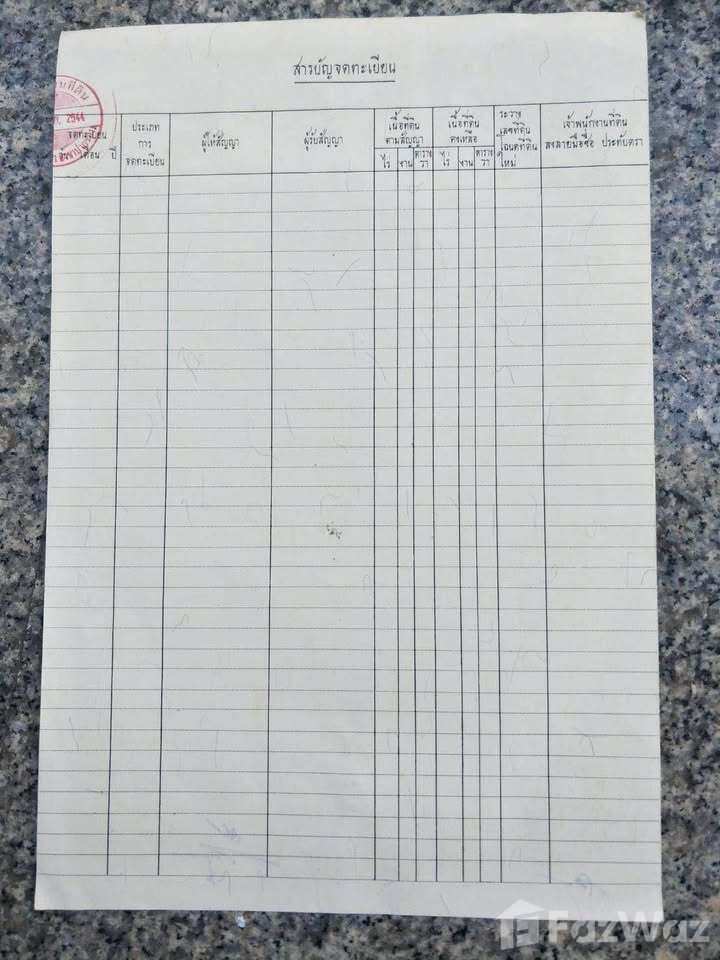 สารบัญจดทะเบียน
ที่ดิน
2544
จดทะเบียน
ปี
ประเภท
การ
จดทะเบียน
ผู้ให้สัญญา
ผู้รับสัญญา
เนื้อที่ดิน
ตามสัญญา
ไร่ งาน ตาราง
วา
เนื้อที่ดิน
คงเหลือ
ไร่ งาน ตาราง
วา
ระวาง
เลขที่ดิน
โฉนดที่ดิน
ใหม่
เจ้าพนักงานที่ดิน
ลงลายมือชื่อ ประทับตรา
FazWaz